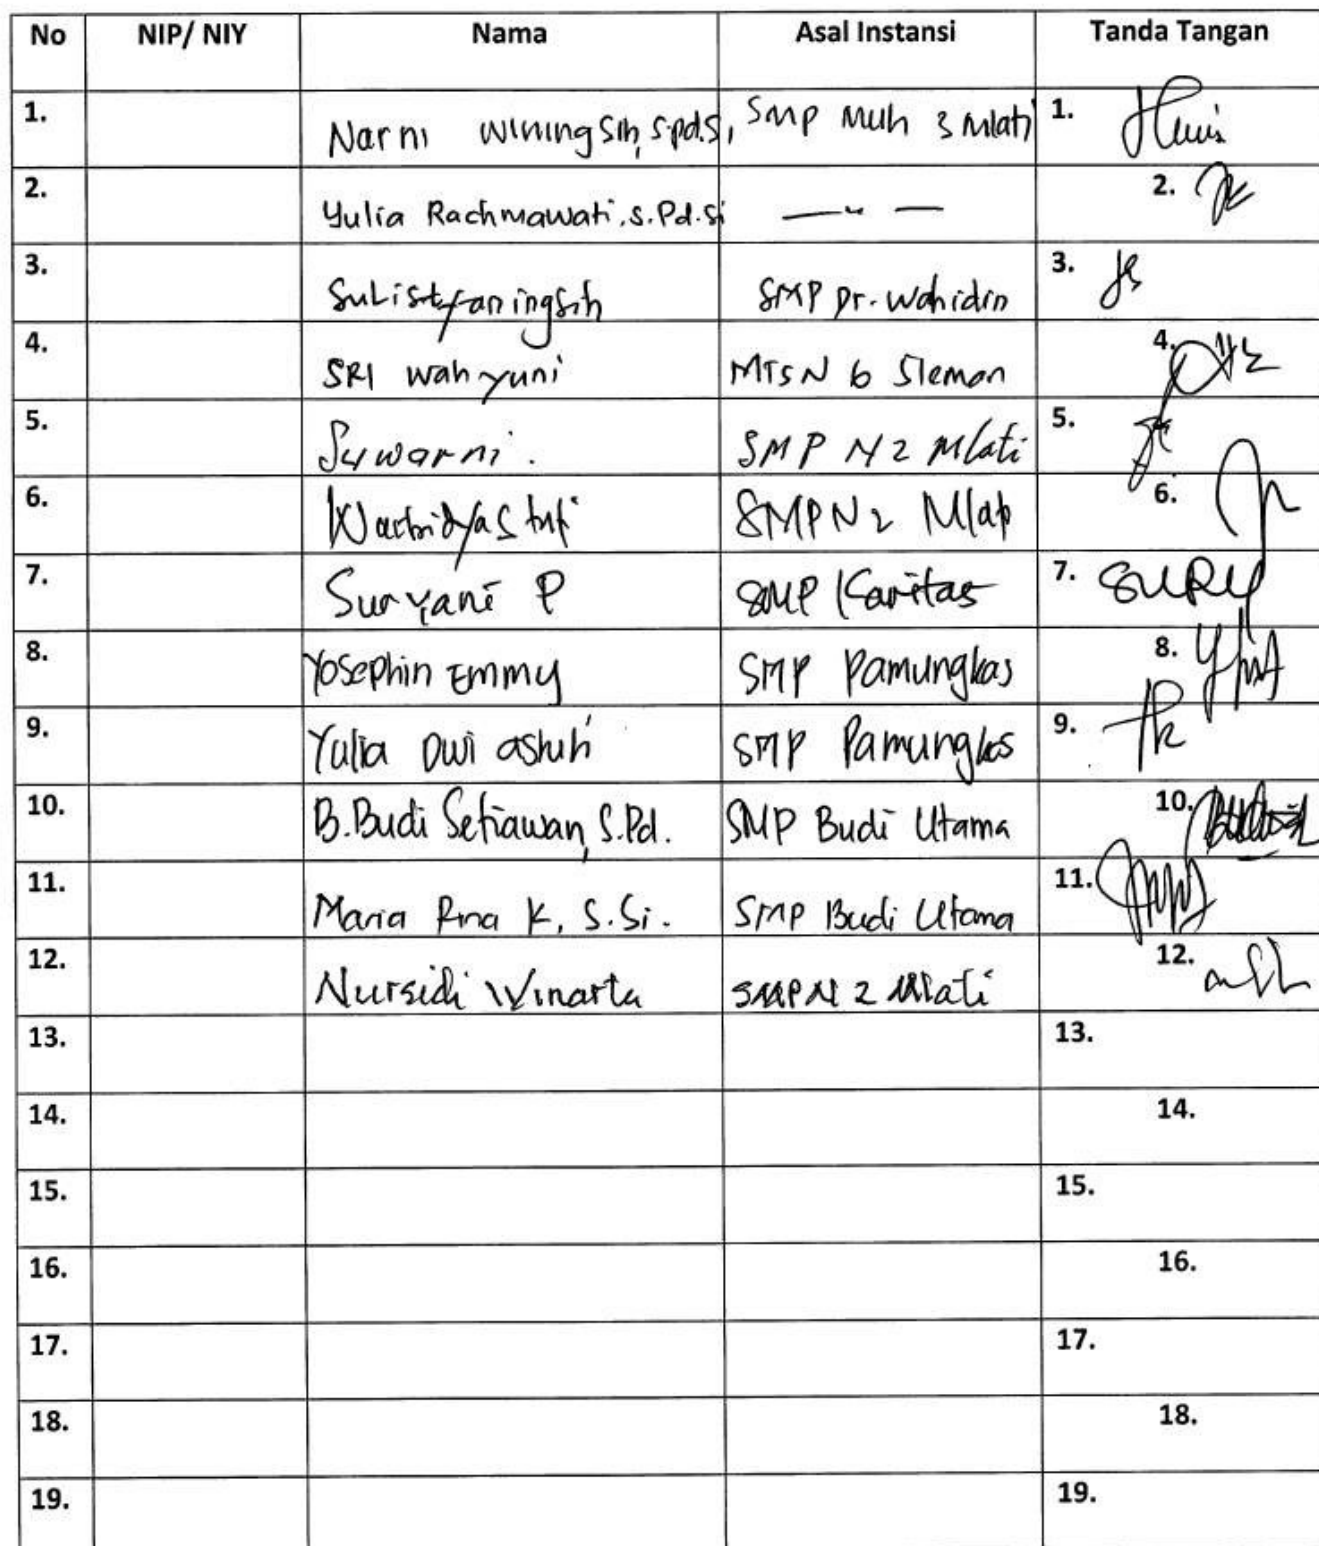 No NIP/ NIY Nama Asal Instansi Tanda Tangan
1. Narni Winingsih, S.pd.Si, SMP Muh 3 Mlati 1.
2. Yulia Rachmawati.S.Pd.Si —〃— 2.
3. Sulistyaningsih SMP Dr. Wahidin 3.
4. SRI Wahyuni MTSN 6 Sleman 4.
5. Suwarni. SMP N 2 Mlati 5.
6. SMP N 2 Mlati 6.
7. Suryani P SMP Karitas 7. SURY
8. Yosephin Emmy SMP Pamungkas 8.
9. Yulia Dwi astuti SMP Pamungkas 9.
10. B.Budi Setiawan, S.Pd. SMP Budi Utama 10.
11. Maria Rina K, S.Si. SMP Budi Utama 11.
12. Nursidi Winarta SMP N 2 Mlati 12.
13. 13.
14. 14.
15. 15.
16. 16.
17. 17.
18. 18.
19. 19.